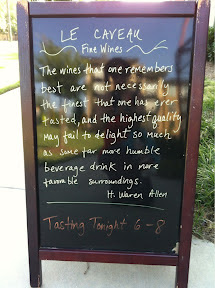 LE CAVEAU
Fine Wines
The wines that one remembers
best are not necessarily
the finest that one has ever
tasted, and the highest quality
may fail to delight so much
as some far more humble
beverage drink in more
favorable surroundings.
H. Waren Allen
Tasting Tonight 6-8